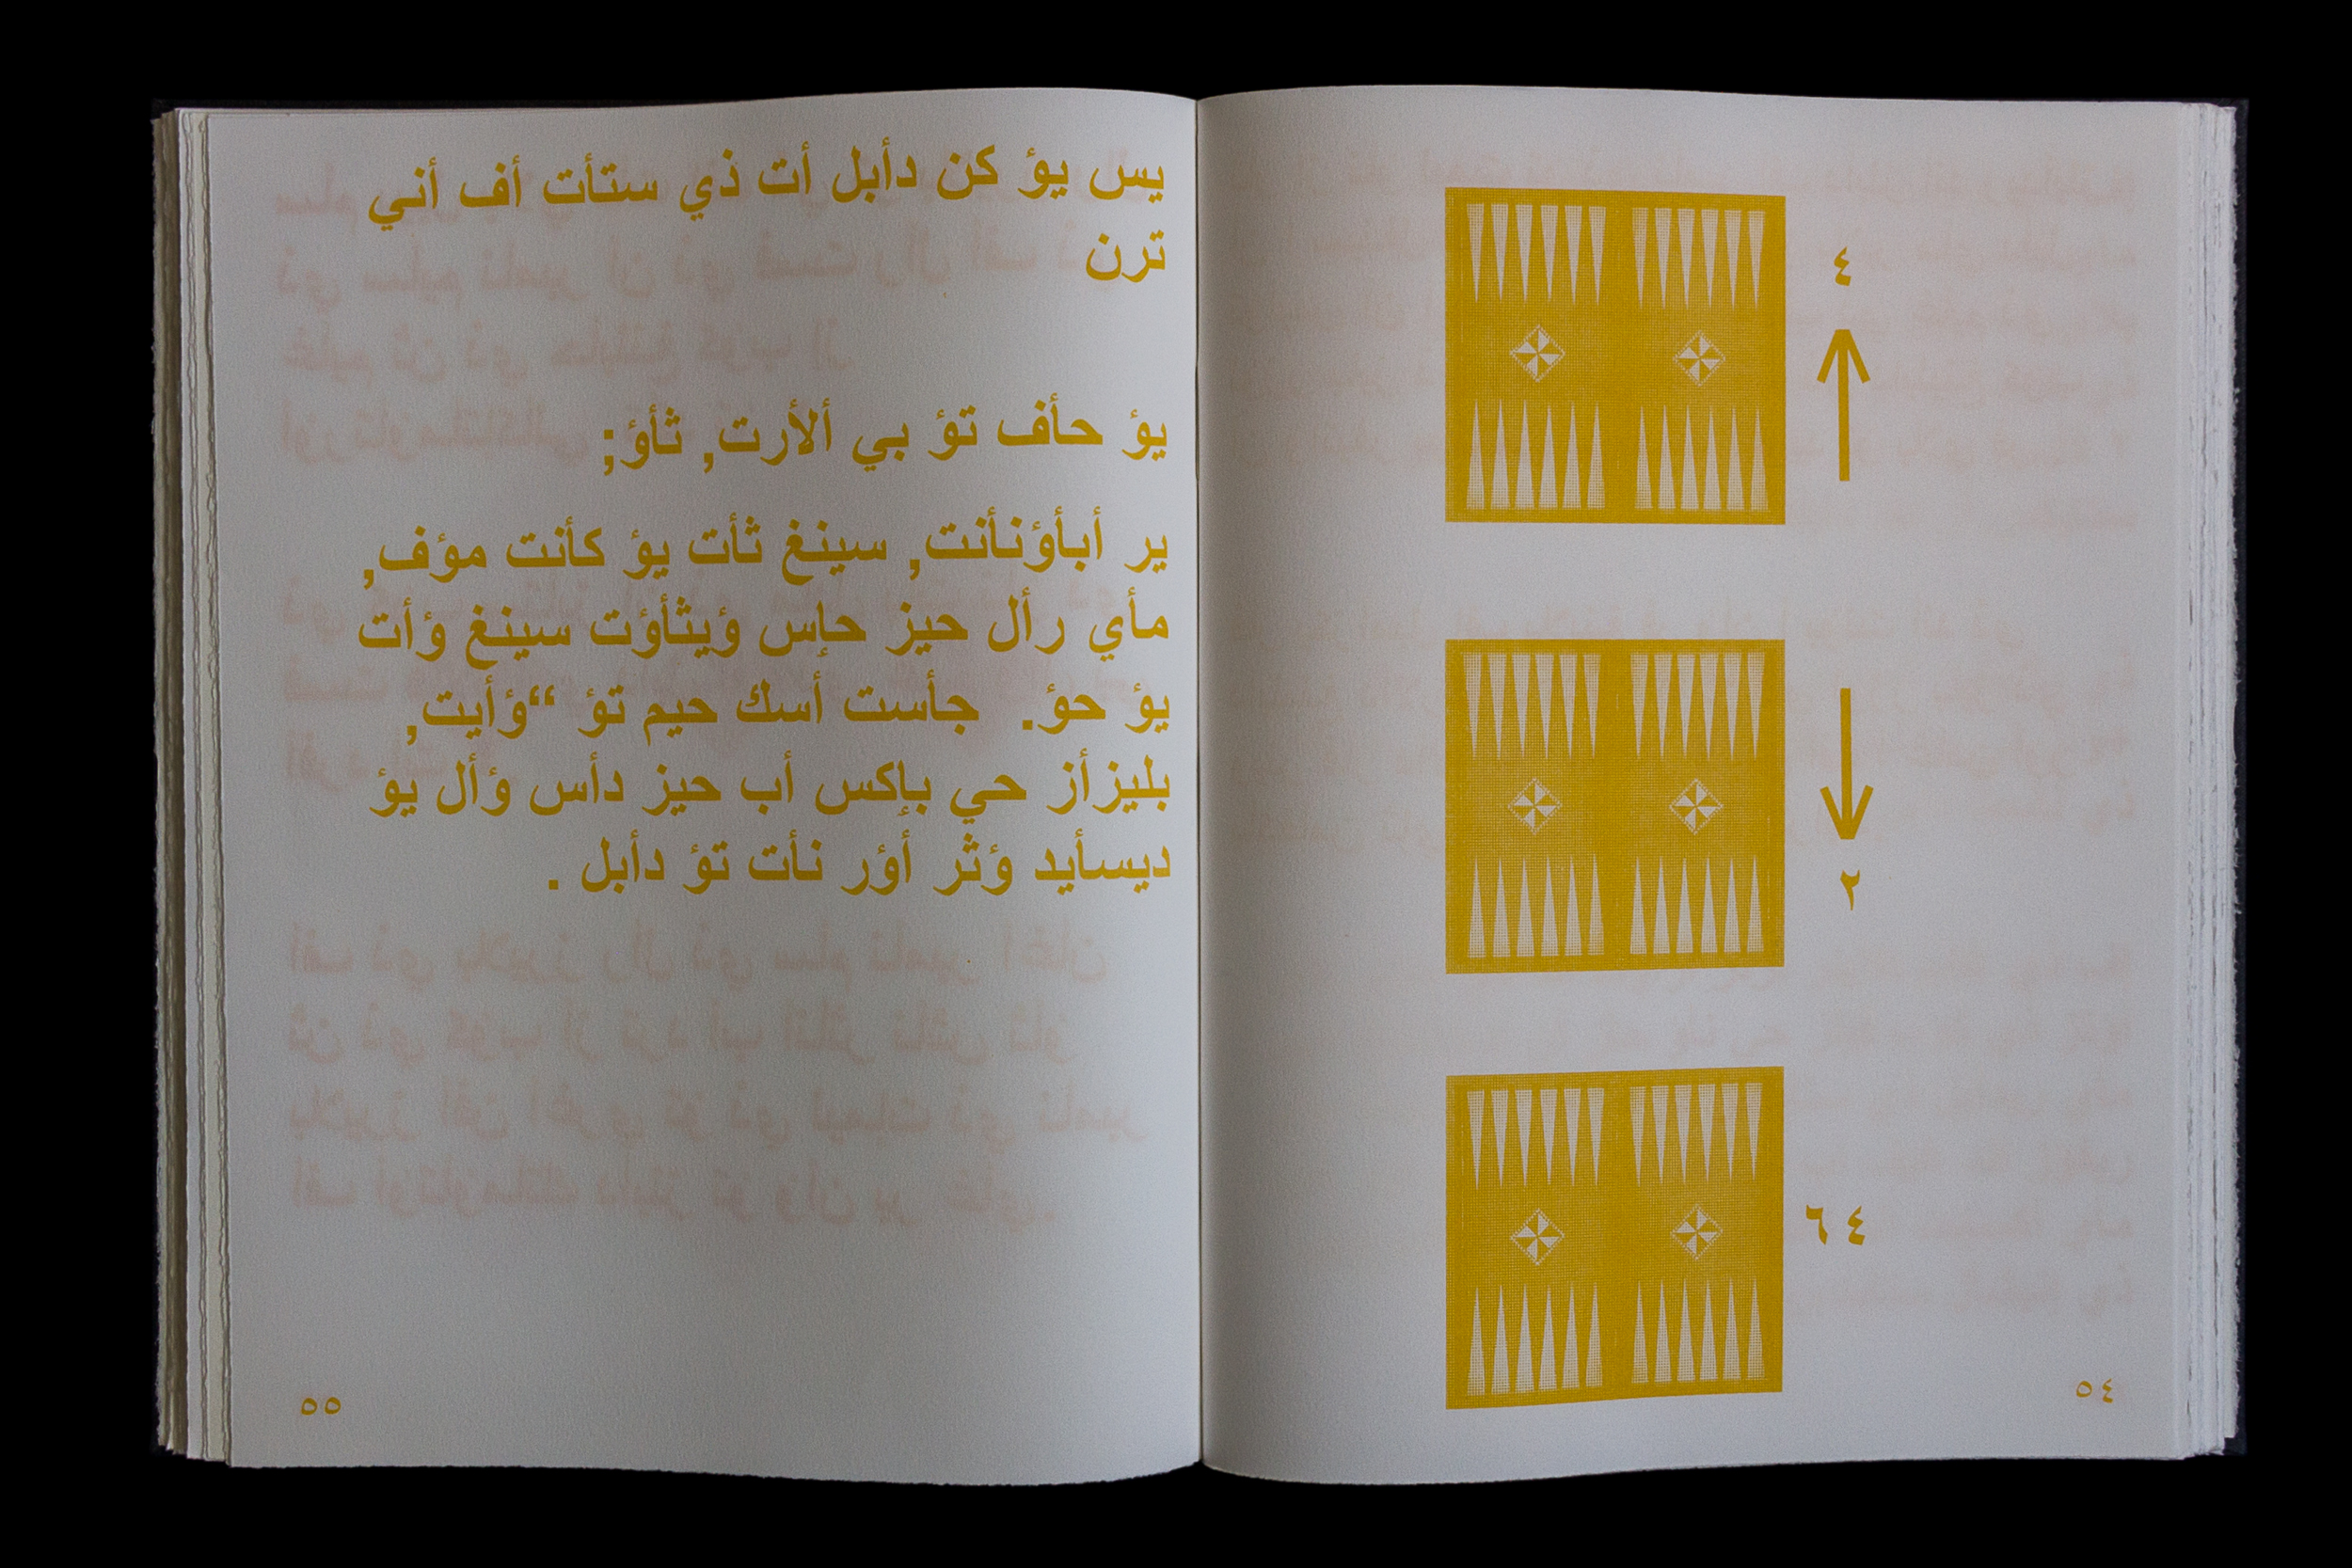 ٤
٢
٦٤
٥٤
يس يؤ كن دأبل أت ذي ستأت أف أني
ترن
يؤ حأف تؤ بي ألأرت, ثأؤ;
ير أبأؤنأنت, سينغ ثأت يؤ كأنت مؤف,
مأي رأل حيز حإس ؤيثأؤت سينغ ؤأت
يؤ حؤ. جأست أسك حيم تؤ “ؤأيت,
بليزأز حي بإكس أب حيز دأس ؤأل يؤ
ديسأيد ؤثر أؤر نأت تؤ دأبل .
٥٥